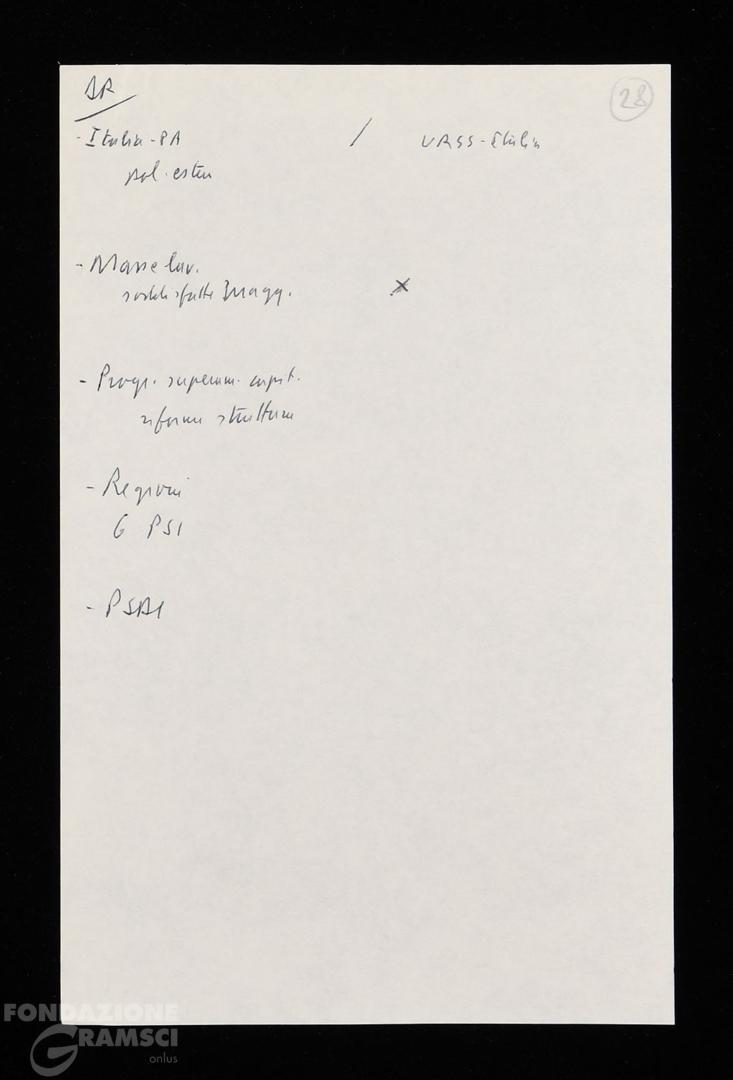 28
- Italia - PA / URSS - Italia
pol. estera
- Masse lav.
soddisfatte magg. x
- Progr. superam. capit.
riforme struttura
- Regioni
6 PSI
- PSDI
FONDAZIONE
GRAMSCI
onlus